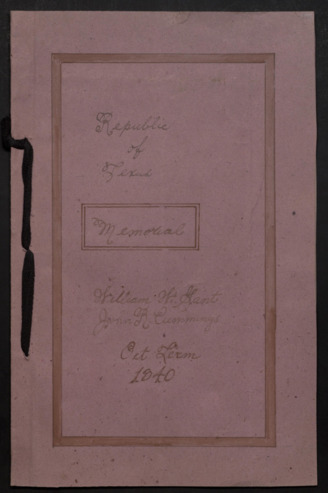 Republic
of
Texas
Memorial
William W. Hunt
John R Cummings
Oct Term
1840